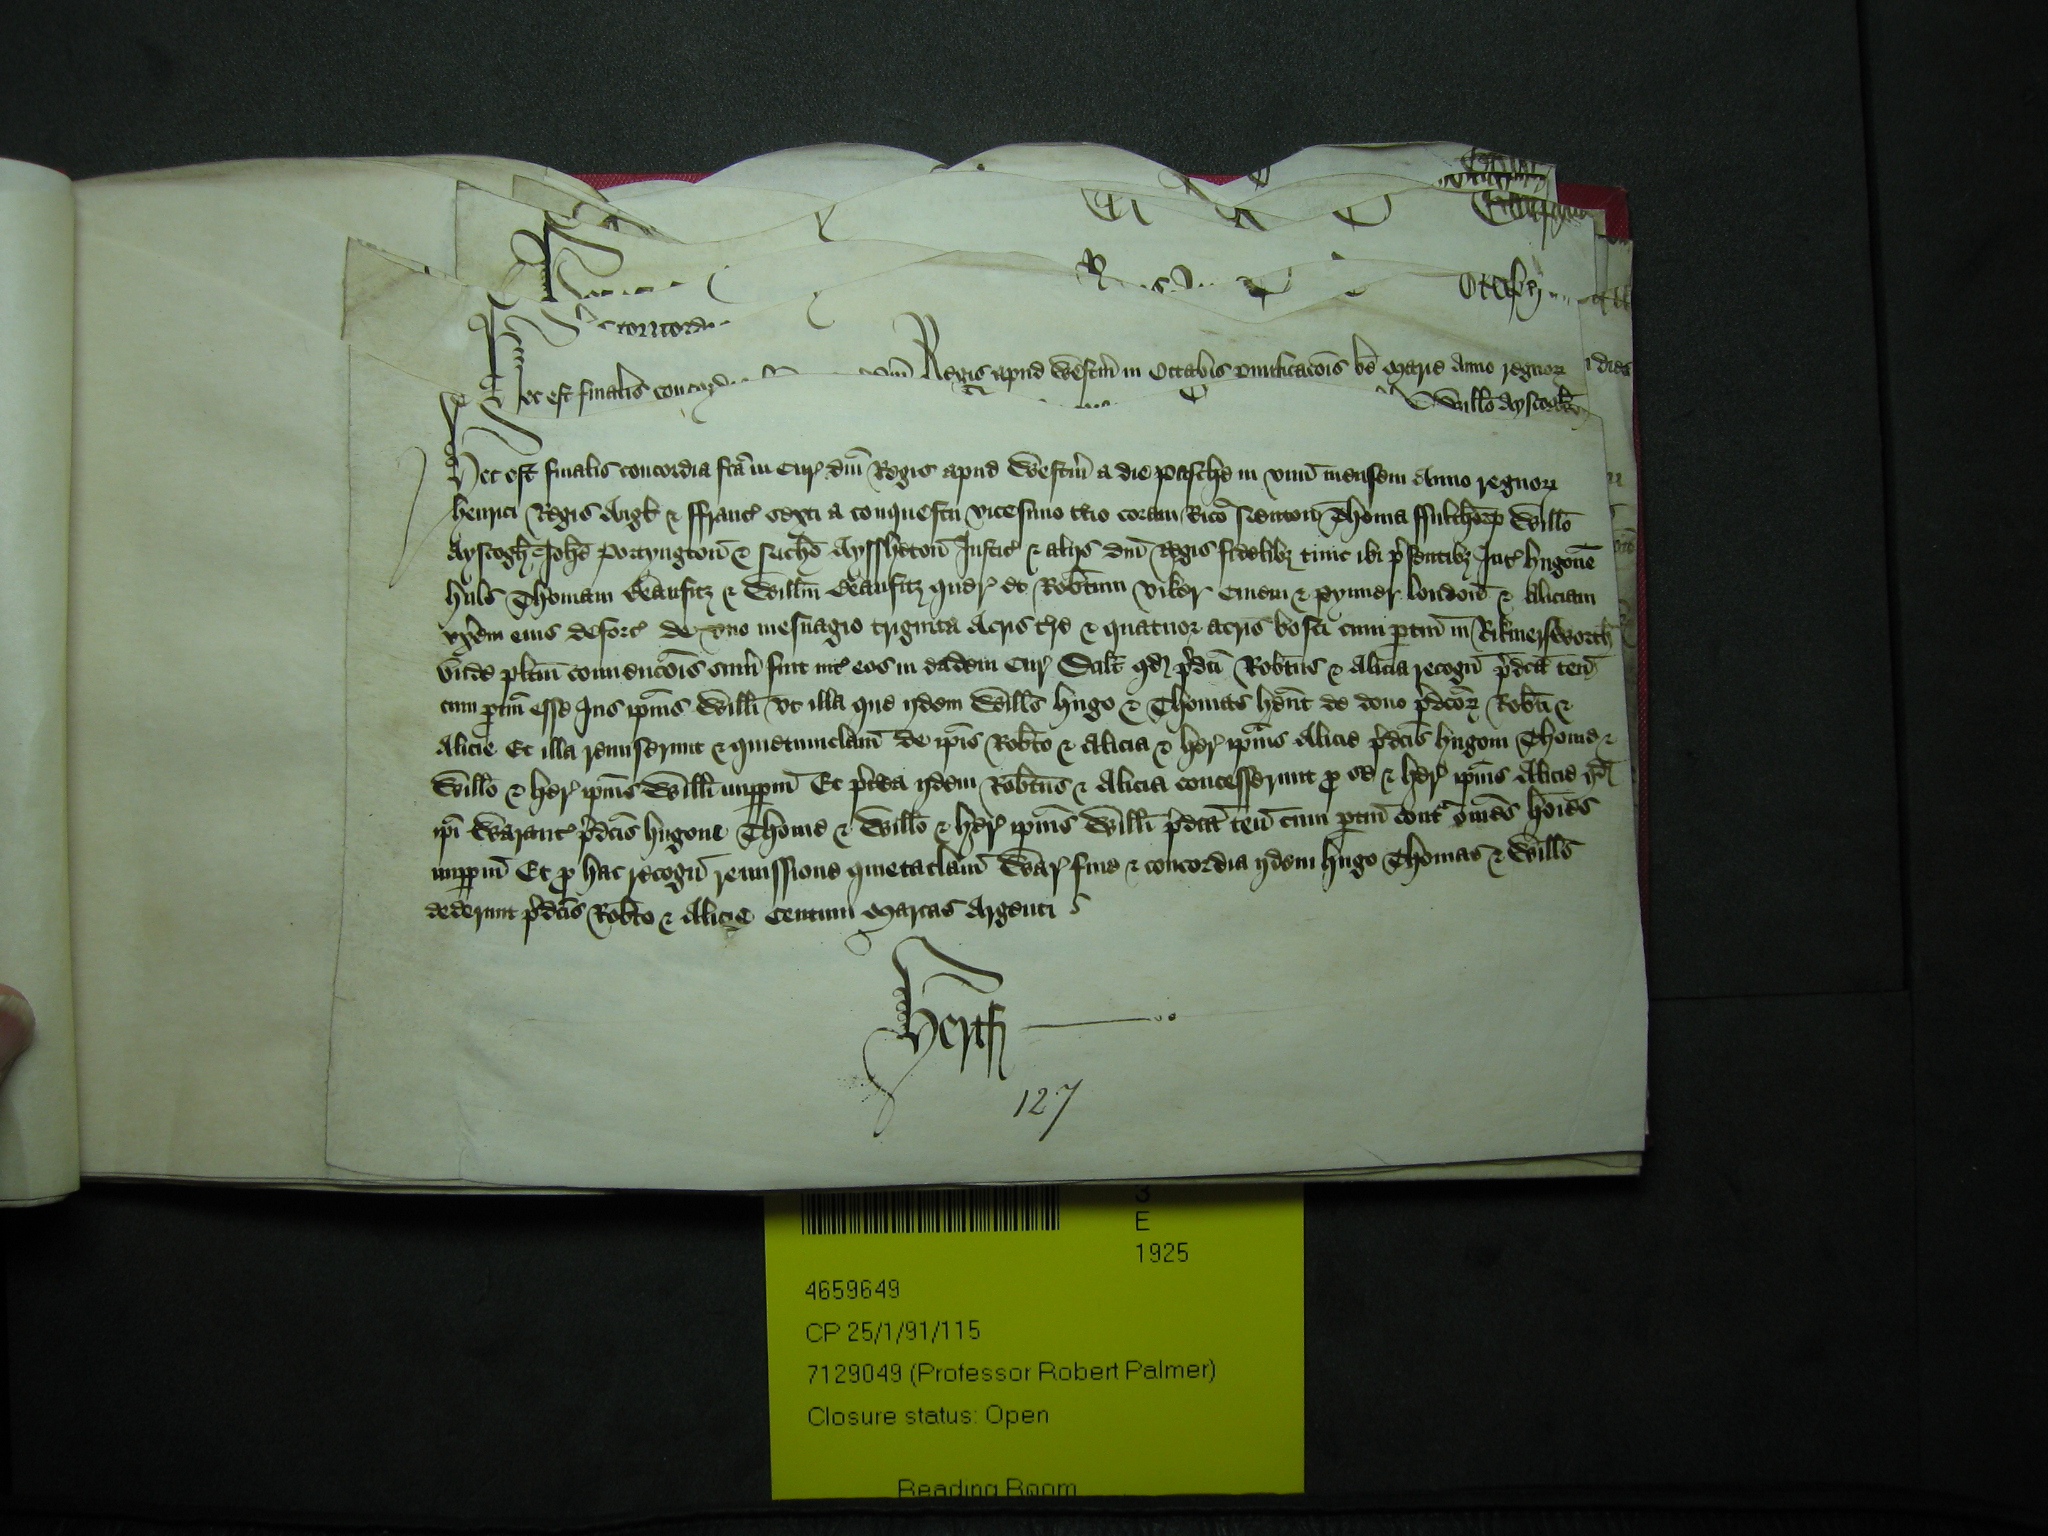 Hec est finalis concordia
Regis apud Westm̄ in Octabis Purificacōis bē Marie Anno regnoꝝ
Willo Ayscogh
Hec est finalis concordia fcā in Cur̄ dn̄i Regis apud Westm̄ a die Pasche in vnū mensem Anno regnoꝝ
Henrici Regis Angl̄ ⁊ ffranc̄ sexti a conquestu vicesimo t̄cio coram Ric̄o Neuton̄ Thoma ffulthorp Willo
Ayscogh Joh̄e Portyngton̄ ⁊ Nich̄o Ayssheton̄ Justic̄ ⁊ alijs dn̄i Regis fidelibꝫ tunc ibi p̄sentibꝫ Int̄ Hugonē
Huls Thomam Beaufitz ⁊ Willm̄ Beaufitz quer̄ et Rob̄tum Ciuem ⁊ London̄ ⁊ Aliciam
vx̄em eius deforc̄ de vno mesuagio triginta acris t̄re ⁊ quatuor acris bosci cum ptin̄ in Rikmersworth
vnde pl̄itum conuencōis sum̄ fuit int̄ eos in eadem Cur̄ Scil̄t qd̄ p̄d̄ci Rob̄tus ⁊ Alicia recogn̄ p̄d̄ca ten̄
cum ptin̄ esse Ius ip̄ius Willi vt illa que ijdem Wills Hugo ⁊ Thomas h̄ent de dono p̄d̄coꝝ Rob̄ti ⁊
Alicie Et illa remiserunt ⁊ quietumclam̄ de ip̄is Rob̄to ⁊ Alicia ⁊ her̄ ip̄ius Alicie p̄d̄cis Hugoni Thome ⁊
Willo ⁊ her̄ ip̄ius Willi imꝑpm̄ Et p̄t̄ea ijdem Rob̄tus ⁊ Alicia concesserunt ꝓ se ⁊ her̄ ip̄ius Alicie qd̄
ip̄i Warant̄ p̄d̄cis Hugoni Thome ⁊ Willo ⁊ her̄ ip̄ius Willi p̄d̄ca ten̄ cum ptin̄ cont̄ om̄es ho͞ies
imꝑpm̄ Et ꝓ hac recogn̄ remissione quietaclam̄ War̄ fine ⁊ concordia ijdem Hugo Thomas ⁊ Wills
dederunt p̄d̄cis Rob̄to ⁊ Alicie Centum Marcas Argenti
Hertf
127
3
E
1925
4659649
CP 25/1/91/115
7129049 (Professor Robert Palmer)
Closure status: Open
Reading Room